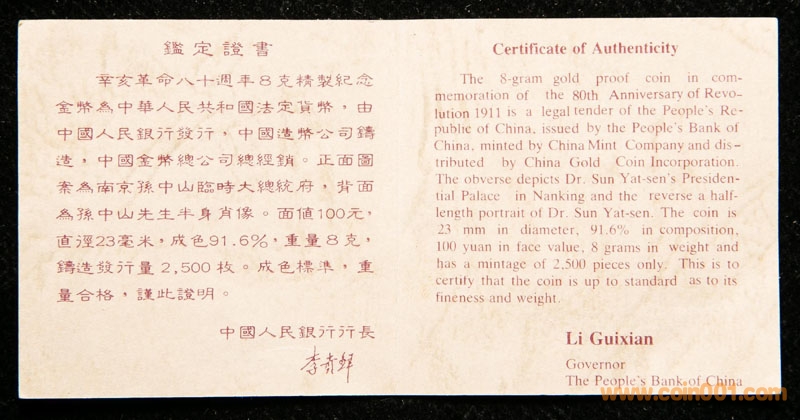 鑑定證書
辛亥革命八十週年8克精製紀念
金幣為中華人民共和國法定貨幣，由
中國人民銀行發行，中國造幣公司鑄
造，中國金幣總公司總經銷。正面圖
案為南京孫中山臨時大總統府，背面
為孫中山先生半身肖像。面值100元，
直徑23毫米，成色91.6%，重量8克，
鑄造發行量2,500枚。成色標準，重
量合格，謹此證明。
中國人民銀行行長
李貴鮮
Certificate of Authenticity
The 8-gram gold proof coin in com-
memoration of the 80th Anniversary of Revo-
lution 1911 is a legal tender of the People's Re-
public of China, issued by the People's Bank of
China, minted by China Mint Company and dis-
tributed by China Gold Coin Incorporation.
The obverse depicts Dr. Sun Yat-sen's Presiden-
tial Palace in Nanking and the reverse a half-
length portrait of Dr. Sun Yat-sen. The coin is
23 mm in diameter, 91.6% in composition,
100 yuan in face value, 8 grams in weight and
has a mintage of 2,500 pieces only. This is to
certify that the coin is up to standard as to its
fineness and weight.
Li Guixian
Governor
The People's Bank of China
www.coin001.com